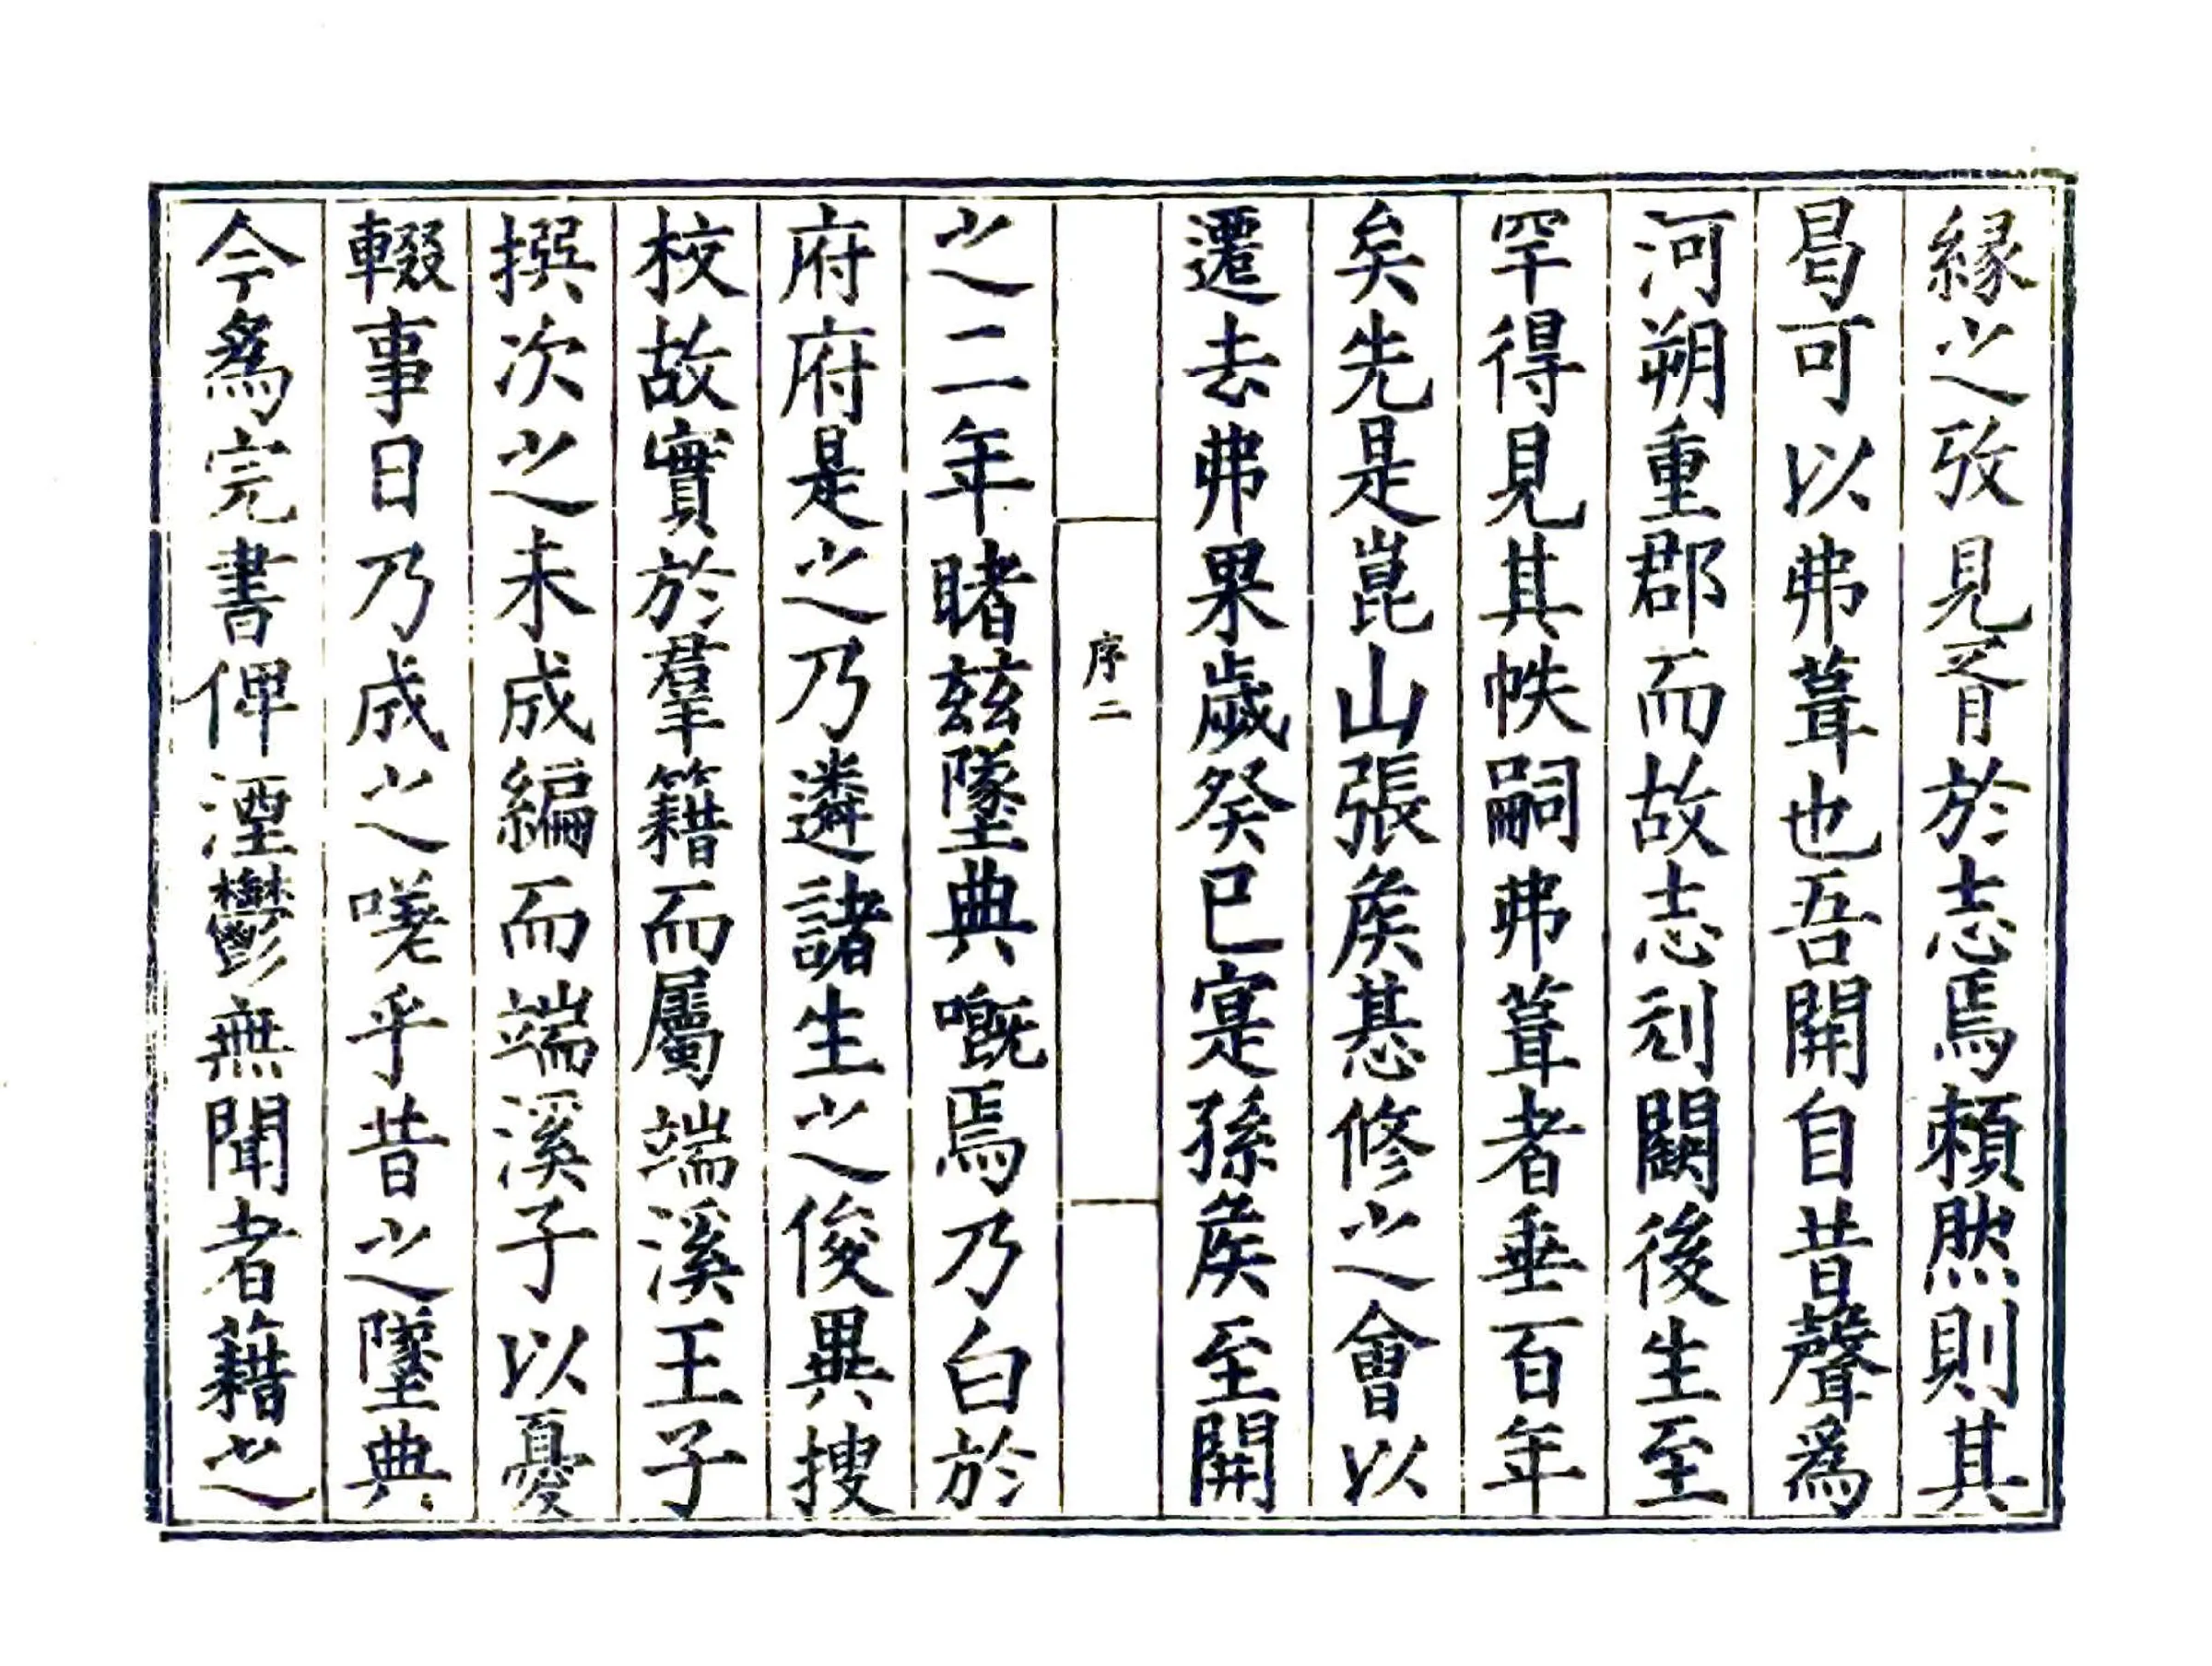 緣之攷見胥於志焉賴然則其
曷可以弗葺也吾開自昔聲爲
河朔重郡而故志刓闕後生至
罕得見其帙嗣弗葺者垂百年
矣先是崑山張矦惎修之會以
遷去弗果歲癸巳寔孫矦至開
序二
之二年睹茲墬典嘅焉乃白於
府府是之乃遴諸生之俊異搜
校故實於羣籍而屬端溪王子
撰次之未成編而端溪子以憂
輟事日乃成之嘆乎昔之墬典
今爲完書俾湮鬱無聞者藉之